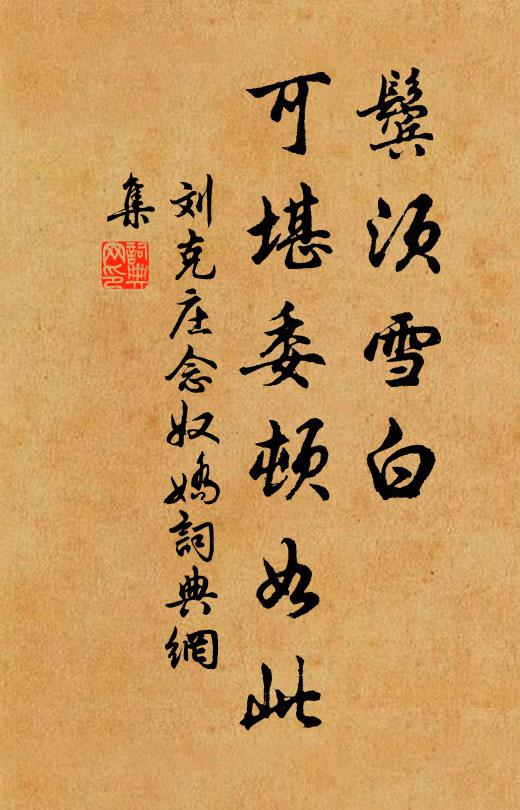 鬓须雪白
可堪委顿如此
刘克庄念奴娇詞典網
集
詞典网印